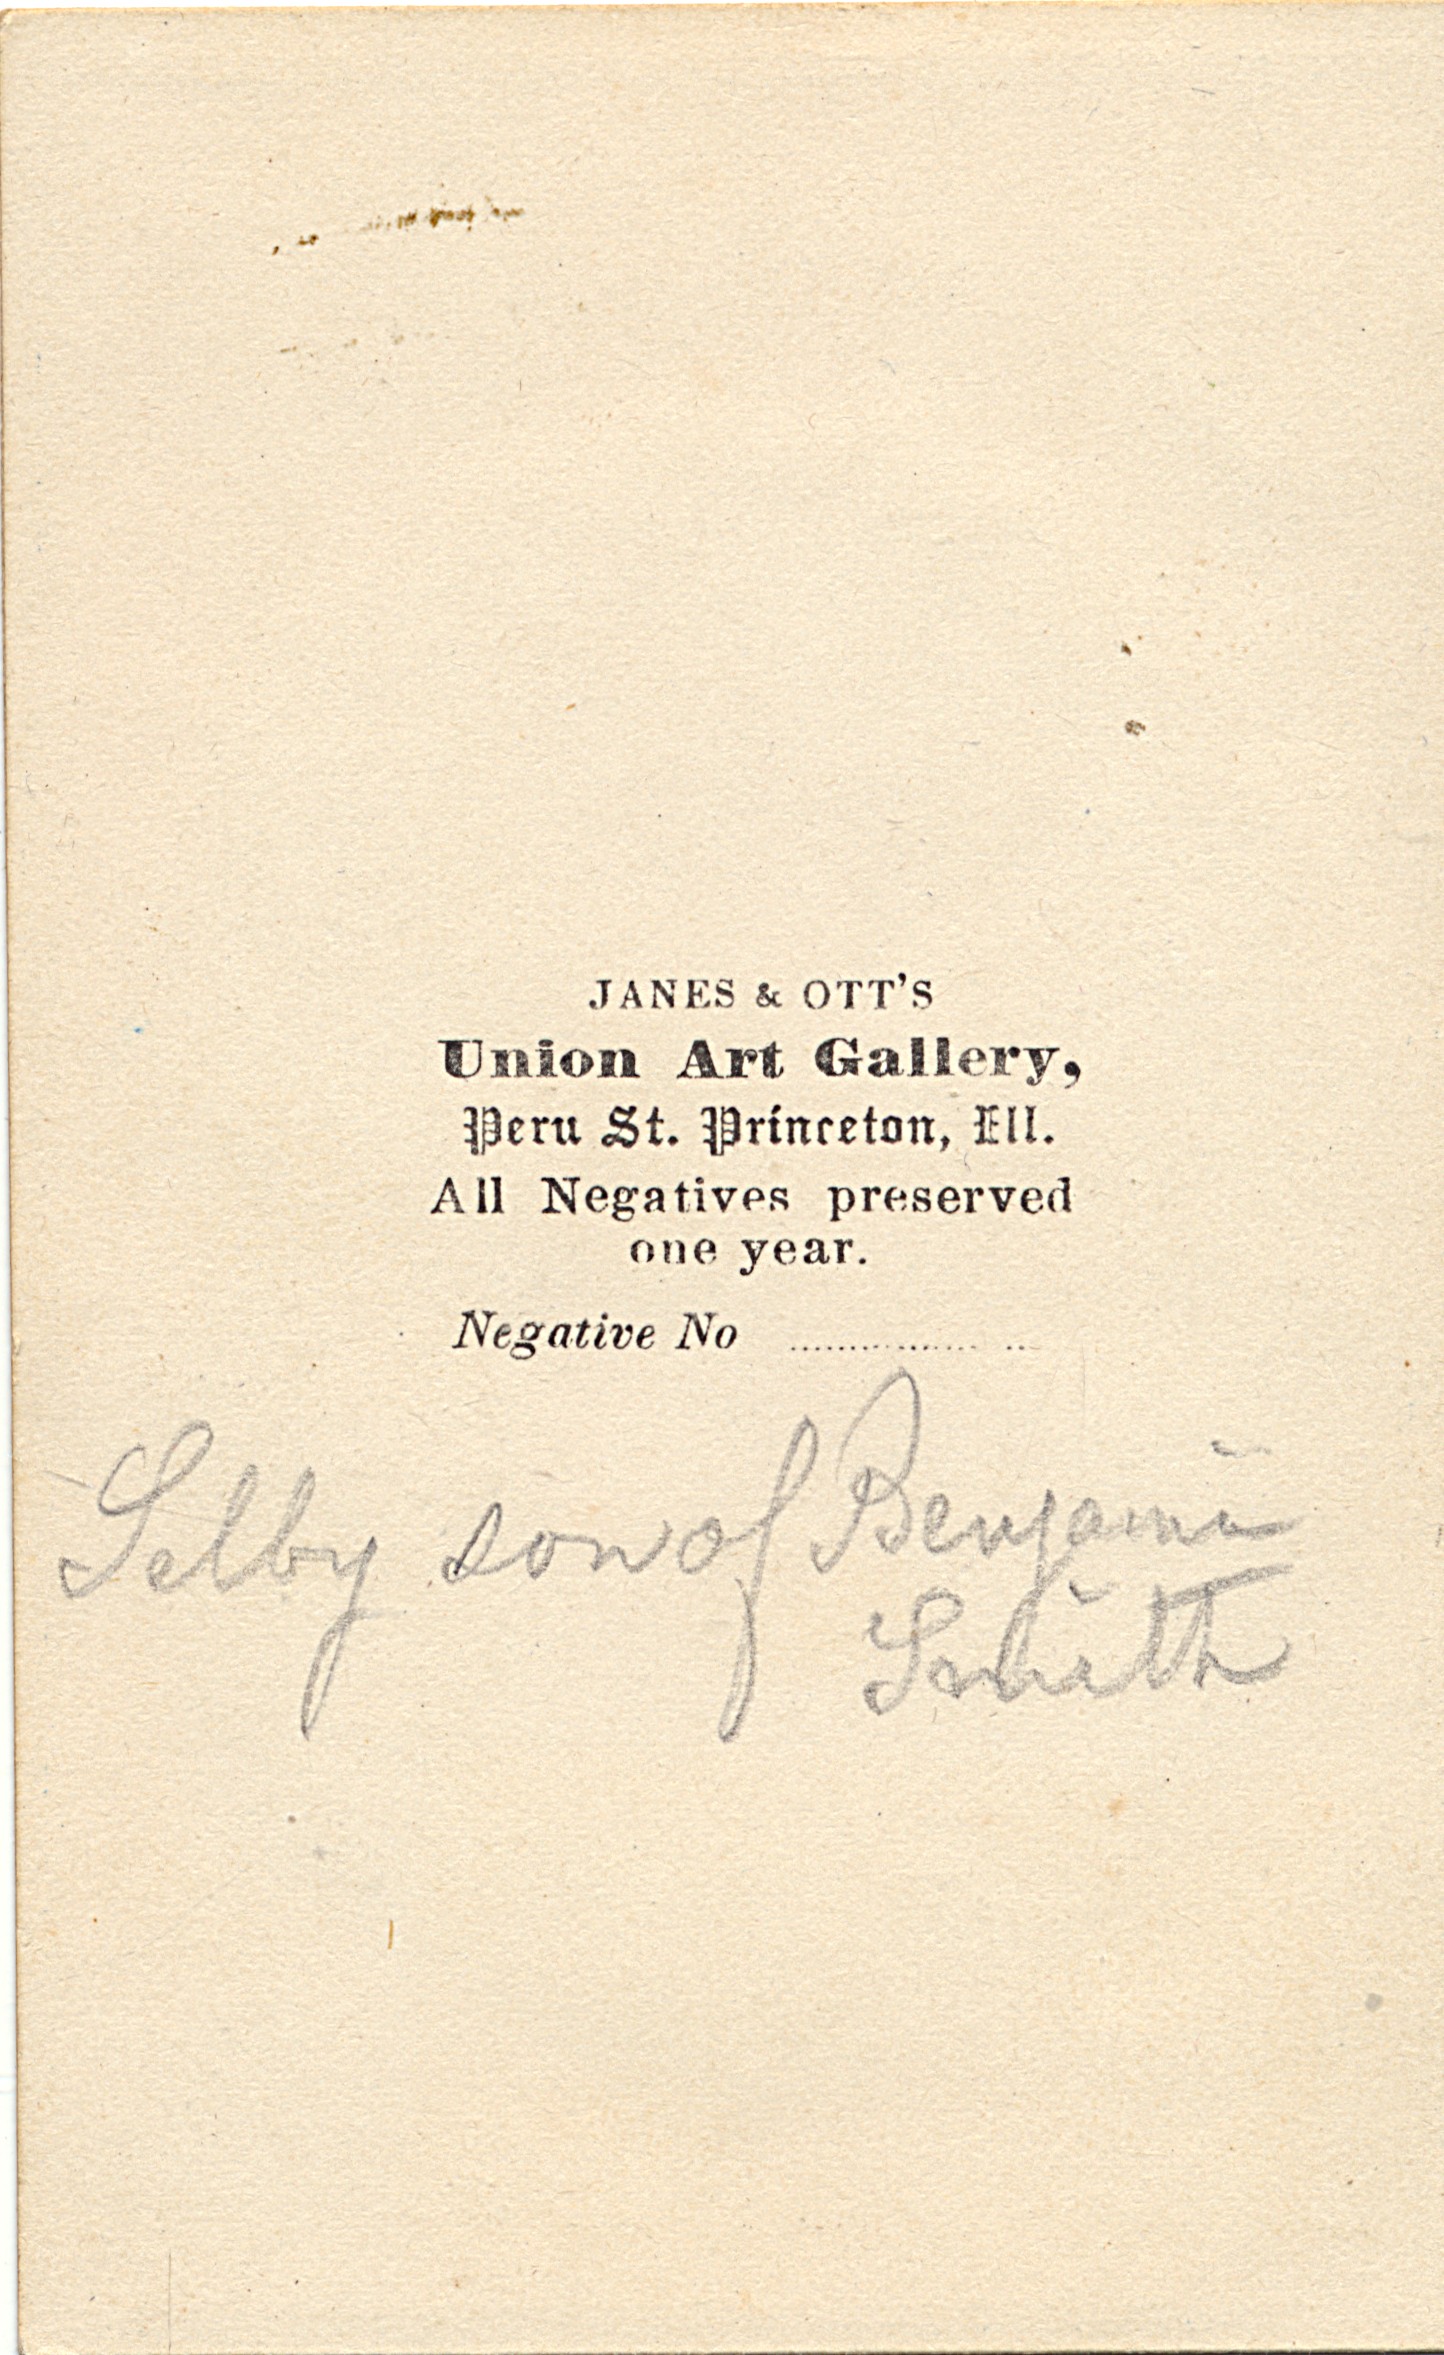 JANES & OTT'S
Union Art Gallery,
Peru St. Princeton, Ill.
All Negatives preserved
one year.
Negative No ..................
Selby son of Benjamin
Smith